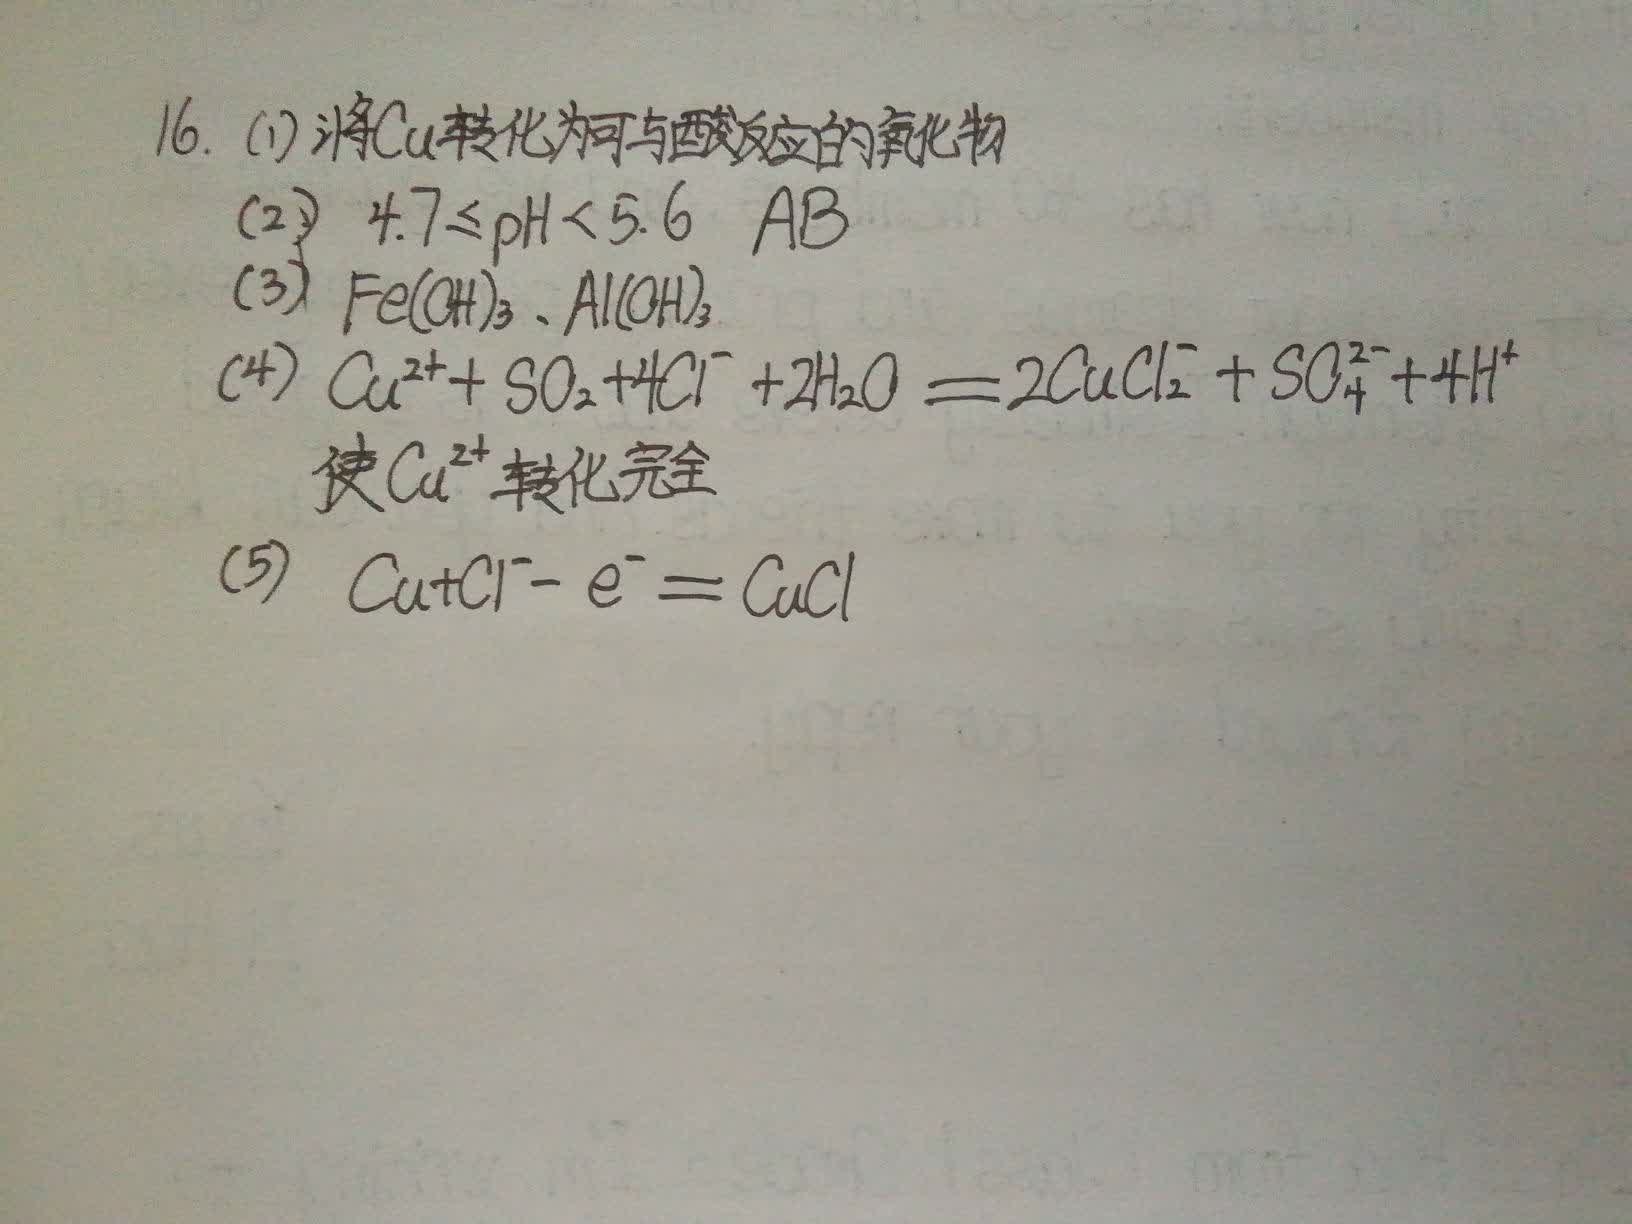 16. (1) 将Cu转化为可与酸反应的氧化物
(2) 4.7≤pH<5.6 AB
(3) Fe(OH)₃、Al(OH)₃
(4) Cu²⁺+SO₂+4Cl⁻+2H₂O=2CuCl₂⁻+SO₄²⁻+4H⁺
使Cu²⁺转化完全
(5) Cu+Cl⁻-e⁻=CuCl